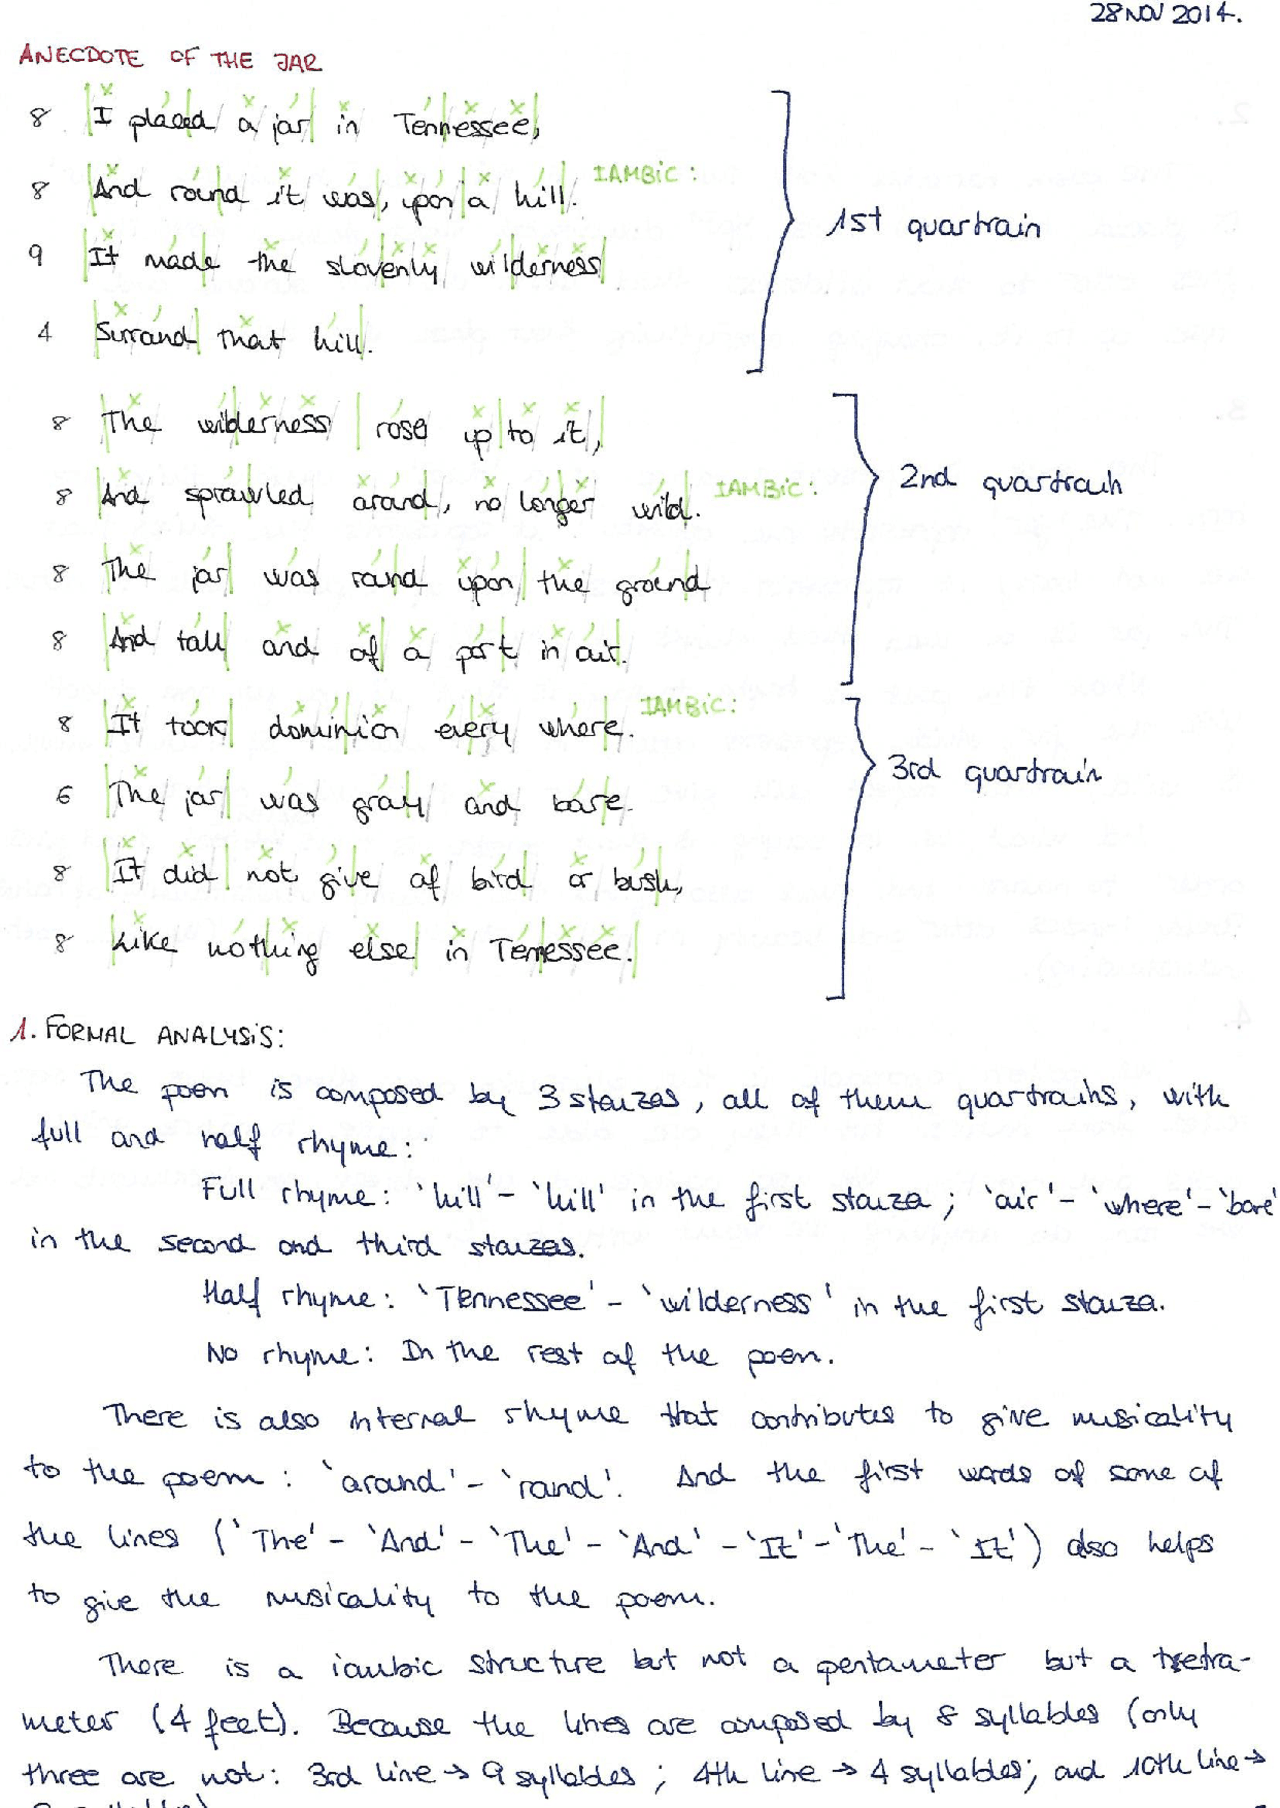 28 NOV 2014.
ANECDOTE OF THE JAR
8 I placed a jar in Tennessee,
8 And round it was, upon a hill. IAMBIC:
9 It made the slovenly wilderness
4 Surround that hill.
1st quartrain
8 The wilderness rose up to it,
8 And sprawled around, no longer wild. IAMBIC:
8 The jar was round upon the ground
8 And tall and of a port in air.
2nd quartrain
8 It took dominion every where. IAMBIC:
6 The jar was gray and bare.
8 It did not give of bird or bush,
8 Like nothing else in Tennessee.
3rd quartrain
1. FORMAL ANALYSIS:
The poem is composed by 3 stanzas, all of them quartrains, with
full and half rhyme:
Full rhyme: 'hill' - 'hill' in the first stanza; 'air' - 'where' - 'bare'
in the second and third stanzas.
Half rhyme: 'Tennessee' - 'wilderness' in the first stanza.
No rhyme: In the rest of the poem.
There is also internal rhyme that contributes to give musicality
to the poem: 'around' - 'round'. And the first words of some of
the lines ('The' - 'And' - 'The' - 'And' - 'It' - 'The' - 'It') also helps
to give the musicality to the poem.
There is a iambic structure but not a pentameter but a tretra-
meter (4 feet). Because the lines are composed by 8 syllables (only
three are not: 3rd line → 9 syllables; 4th line → 4 syllables; and 10th line →